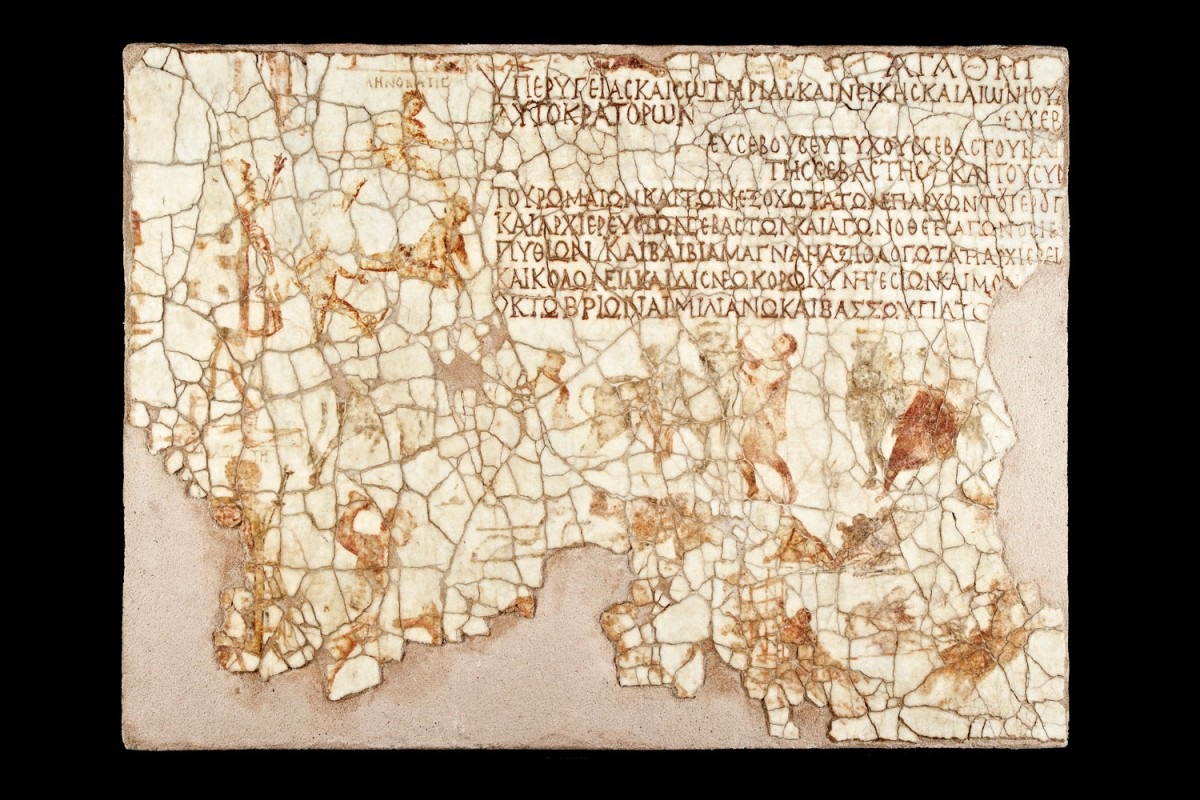 ΑΓΑΘΗΙ
ΥΠΕΡ ΥΓΕΙΑΣ ΚΑΙ ΣΩΤΗΡΙΑΣ ΚΑΙ ΝΕΙΚΗΣ ΚΑΙ ΑΙΩΝΙΟΥ
ΑΥΤΟΚΡΑΤΟΡΩΝ ΕΥΣΕΒ
ΕΥΣΕΒΟΥΣ ΕΥΤΥΧΟΥΣ ΣΕΒΑΣΤΟΥ ΚΑΙ
ΤΗΣ ΣΕΒΑΣΤΗΣ ΚΑΙ ΤΟΥ ΣΥΝ
ΤΟΥ ΡΩΜΑΙΩΝ ΚΑΙ ΤΩΝ ΕΞΟΧΩΤΑΤΩΝ ΕΠΑΡΧΩΝ ΤΟΥ ΙΕΡΟΥ
ΚΑΙ ΑΡΧΙΕΡΕΥΣ ΤΩΝ ΣΕΒΑΣΤΩΝ ΚΑΙ ΑΓΩΝΟΘΕΤΗΣ ΑΓΩΝΟΣ
ΠΥΘΙΩΝ ΚΑΙ ΒΑΙΒΙΑ ΜΑΓΝΑ Η ΑΞΙΟΛΟΓΩΤΑΤΗ ΑΡΧΙΕΡΕΙ
ΚΑΙ ΚΟΛΩΝΕΙΑ ΚΑΙ ΔΙΣ ΝΕΩΚΟΡΩ ΚΥΝΗΓΕΣΙΩΝ ΚΑΙ ΜΟ
ΟΚΤΩΒΡΙΩΝ ΑΙΜΙΛΙΑΝΩ ΚΑΙ ΒΑΣΣΟΥ ΠΑΤ